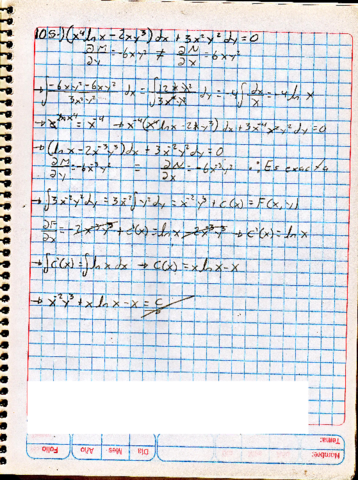 105.) (x⁴ ln x - 2xy³) dx + 3x²y² dy = 0
∂M/∂y = -6xy² ≠ ∂N/∂x = 6xy²
→ ∫ (-6xy² - 6xy²)/(3x²y²) dx = ∫ (-12xy²)/(3x²y²) dx = -4∫ dx/x = -4 ln x
→ x⁻⁴ → x⁻⁴(x⁴ ln x - 2xy³) dx + 3x⁻⁴x²y² dy = 0
→ (ln x - 2x⁻³y³) dx + 3x⁻²y² dy = 0
∂M/∂y = -6x⁻³y² = ∂N/∂x = -6x⁻³y² ∴ Es exacta
→ ∫ 3x⁻²y² dy = 3x⁻² ∫ y² dy = x⁻²y³ + c(x) = F(x,y)
∂F/∂x = -2x⁻³y³ + c'(x) = ln x - 2x⁻³y³ → c'(x) = ln x
→ ∫ c'(x) = ∫ ln x dx → c(x) = x ln x - x
→ x⁻²y³ + x ln x - x = c
Folio
Año
Mes
Día
Tema:
Nombre: